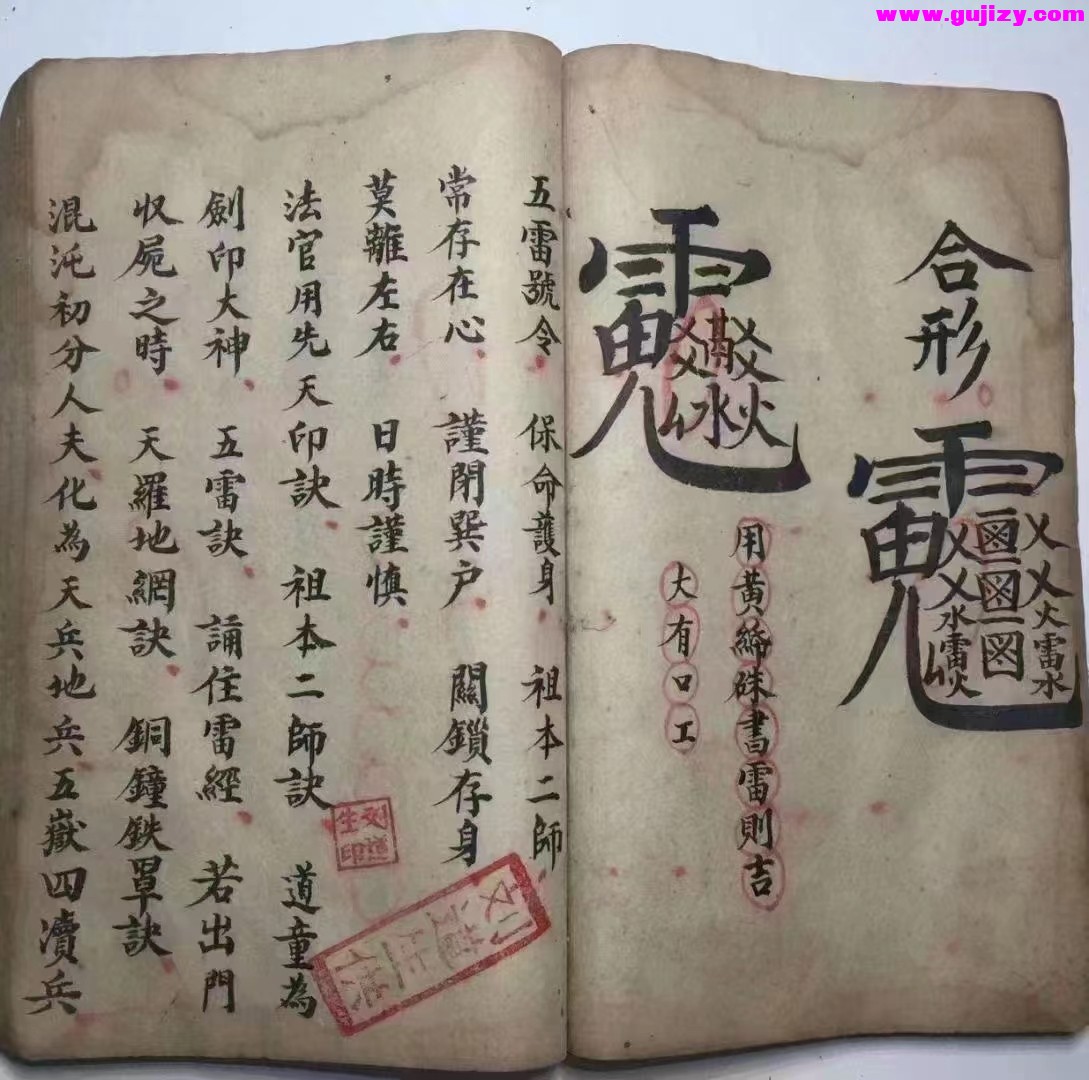 www.gujizy.com
合形
用黃緜硃書雷則吉
大有口工
五雷號令 保命護身 祖本二師
常存在心 謹閉巽户 關鎖存身
莫離左右 日時謹慎
法官用先天印訣 祖本二師訣 道童為
劍印大神 五雷訣 誦住雷經 若出門
收屍之時 天羅地網訣 銅鐘鉄罩訣
混沌初分人夫化為天兵地兵五嶽四瀆兵